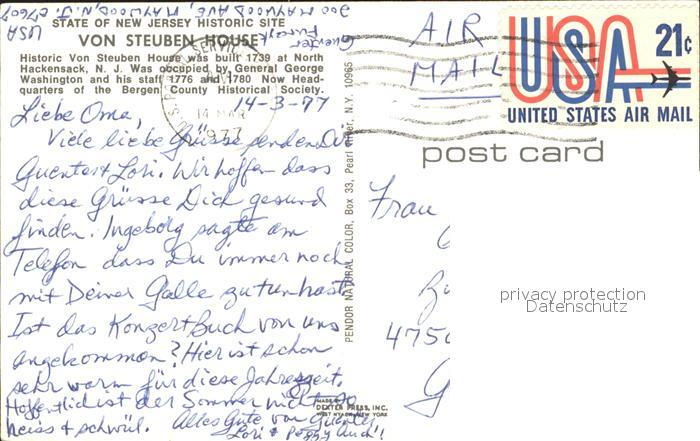 200 MAYWOOD AVE, MAYWOOD N.J. 07607
USA
Guenter
STATE OF NEW JERSEY HISTORIC SITE
VON STEUBEN HOUSE
Historic Von Steuben House was built 1739 at North
Hackensack, N. J. Was occupied by General George
Washington and his staff 1776 and 1780 Now Head-
quarters of the Bergen County Historical Society.
14-3-77
Liebe Oma,
Viele liebe Grüsse senden Dir
Guenter + Lori. Wir hoffen dass
diese Grüsse Dich gesund
finden. Ingeborg sagte am
Telefon dass Du immer noch
mit Deiner Galle zu tun hast.
Ist das Konzertbuch von uns
angekommen? Hier ist schon
sehr warm für diese Jahreszeit.
Hoffentlich ist der Sommer nicht so
heiss + schwül. Alles Gute von Guenter,
Lori + Peggy auch!
14 MAR
1977
PENDOR NATURAL COLOR, Box 33, Pearl River, N.Y. 10965
MADE BY
DEXTER PRESS, INC.
WEST NYACK, NEW YORK
AIR
MAIL
USA 21¢
UNITED STATES AIR MAIL
post card
Frau
475
privacy protection
Datenschutz